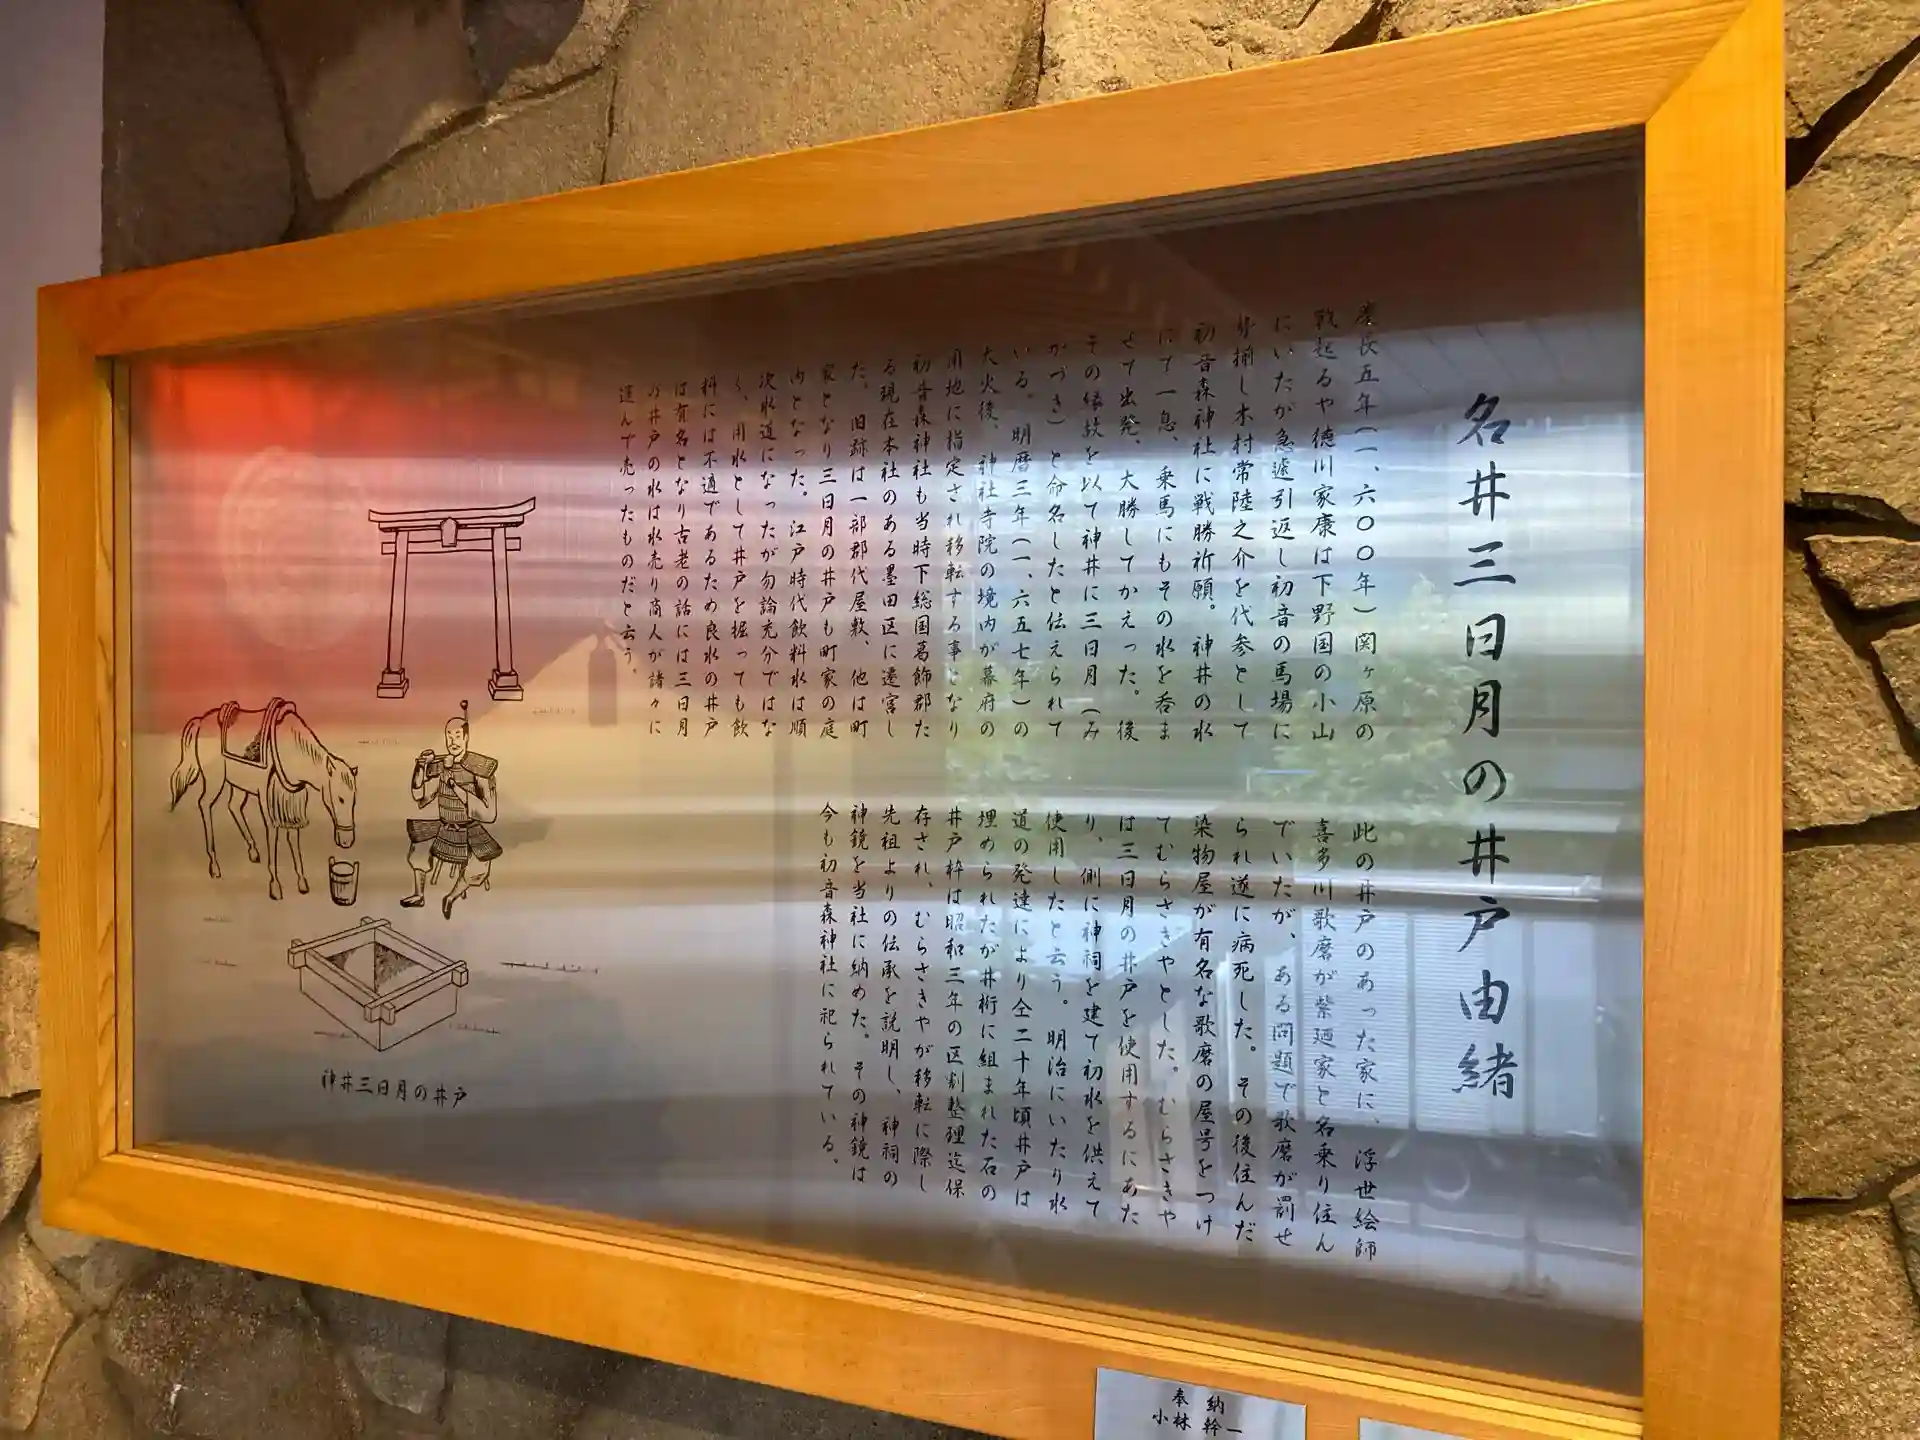 名井三日月の井戸由緒
慶長五年(一、六〇〇年)関ヶ原の
戦起るや徳川家康は下野国の小山
にいたが急遽引返し初音の馬場に
序揃し木村常陸之介を代参として
初音森神社に戦勝祈願。神井の水
にて一息、乗馬にもその水を呑ま
せて出発、大勝してかえった。後
その縁故を以て神井に三日月(み
かづき)と命名したと伝えられて
いる。明暦三年(一、六五七年)の
大火後、神社寺院の境内が幕府の
用地に指定され移転する事となり
初音森神社も当時下総国葛飾郡た
る現在本社のある墨田区に遷宮し
た。旧跡は一部郡代屋敷、他は町
家となり三日月の井戸も町家の庭
内となった。江戸時代飲料水は順
次水道になったが勿論充分ではな
く、用水として井戸を掘っても飲
料には不適であるため良水の井戸
は有名となり古老の話には三日月
の井戸の水は水売り商人が諸々に
運んで売ったものだと云う。
此の井戸のあった家に、浮世絵師
喜多川歌麿が紫廼家と名乗り住ん
でいたが、ある問題で歌麿が罰せ
られ遂に病死した。その後住んだ
染物屋が有名な歌麿の屋号をつけ
てむらさきやとした。むらさきや
は三日月の井戸を使用するにあた
り、側に神祠を建て初水を供えて
使用したと云う。明治にいたり水
道の発達により仝二十年頃井戸は
埋められたが井桁に組まれた石の
井戸枠は昭和三年の区劃整理迄保
存され、むらさきやが移転に際し
先祖よりの伝承を説明し、神祠の
神鏡を当社に納めた。その神鏡は
今も初音森神社に祀られている。
神井三日月の井戸
奉納
小林幹一